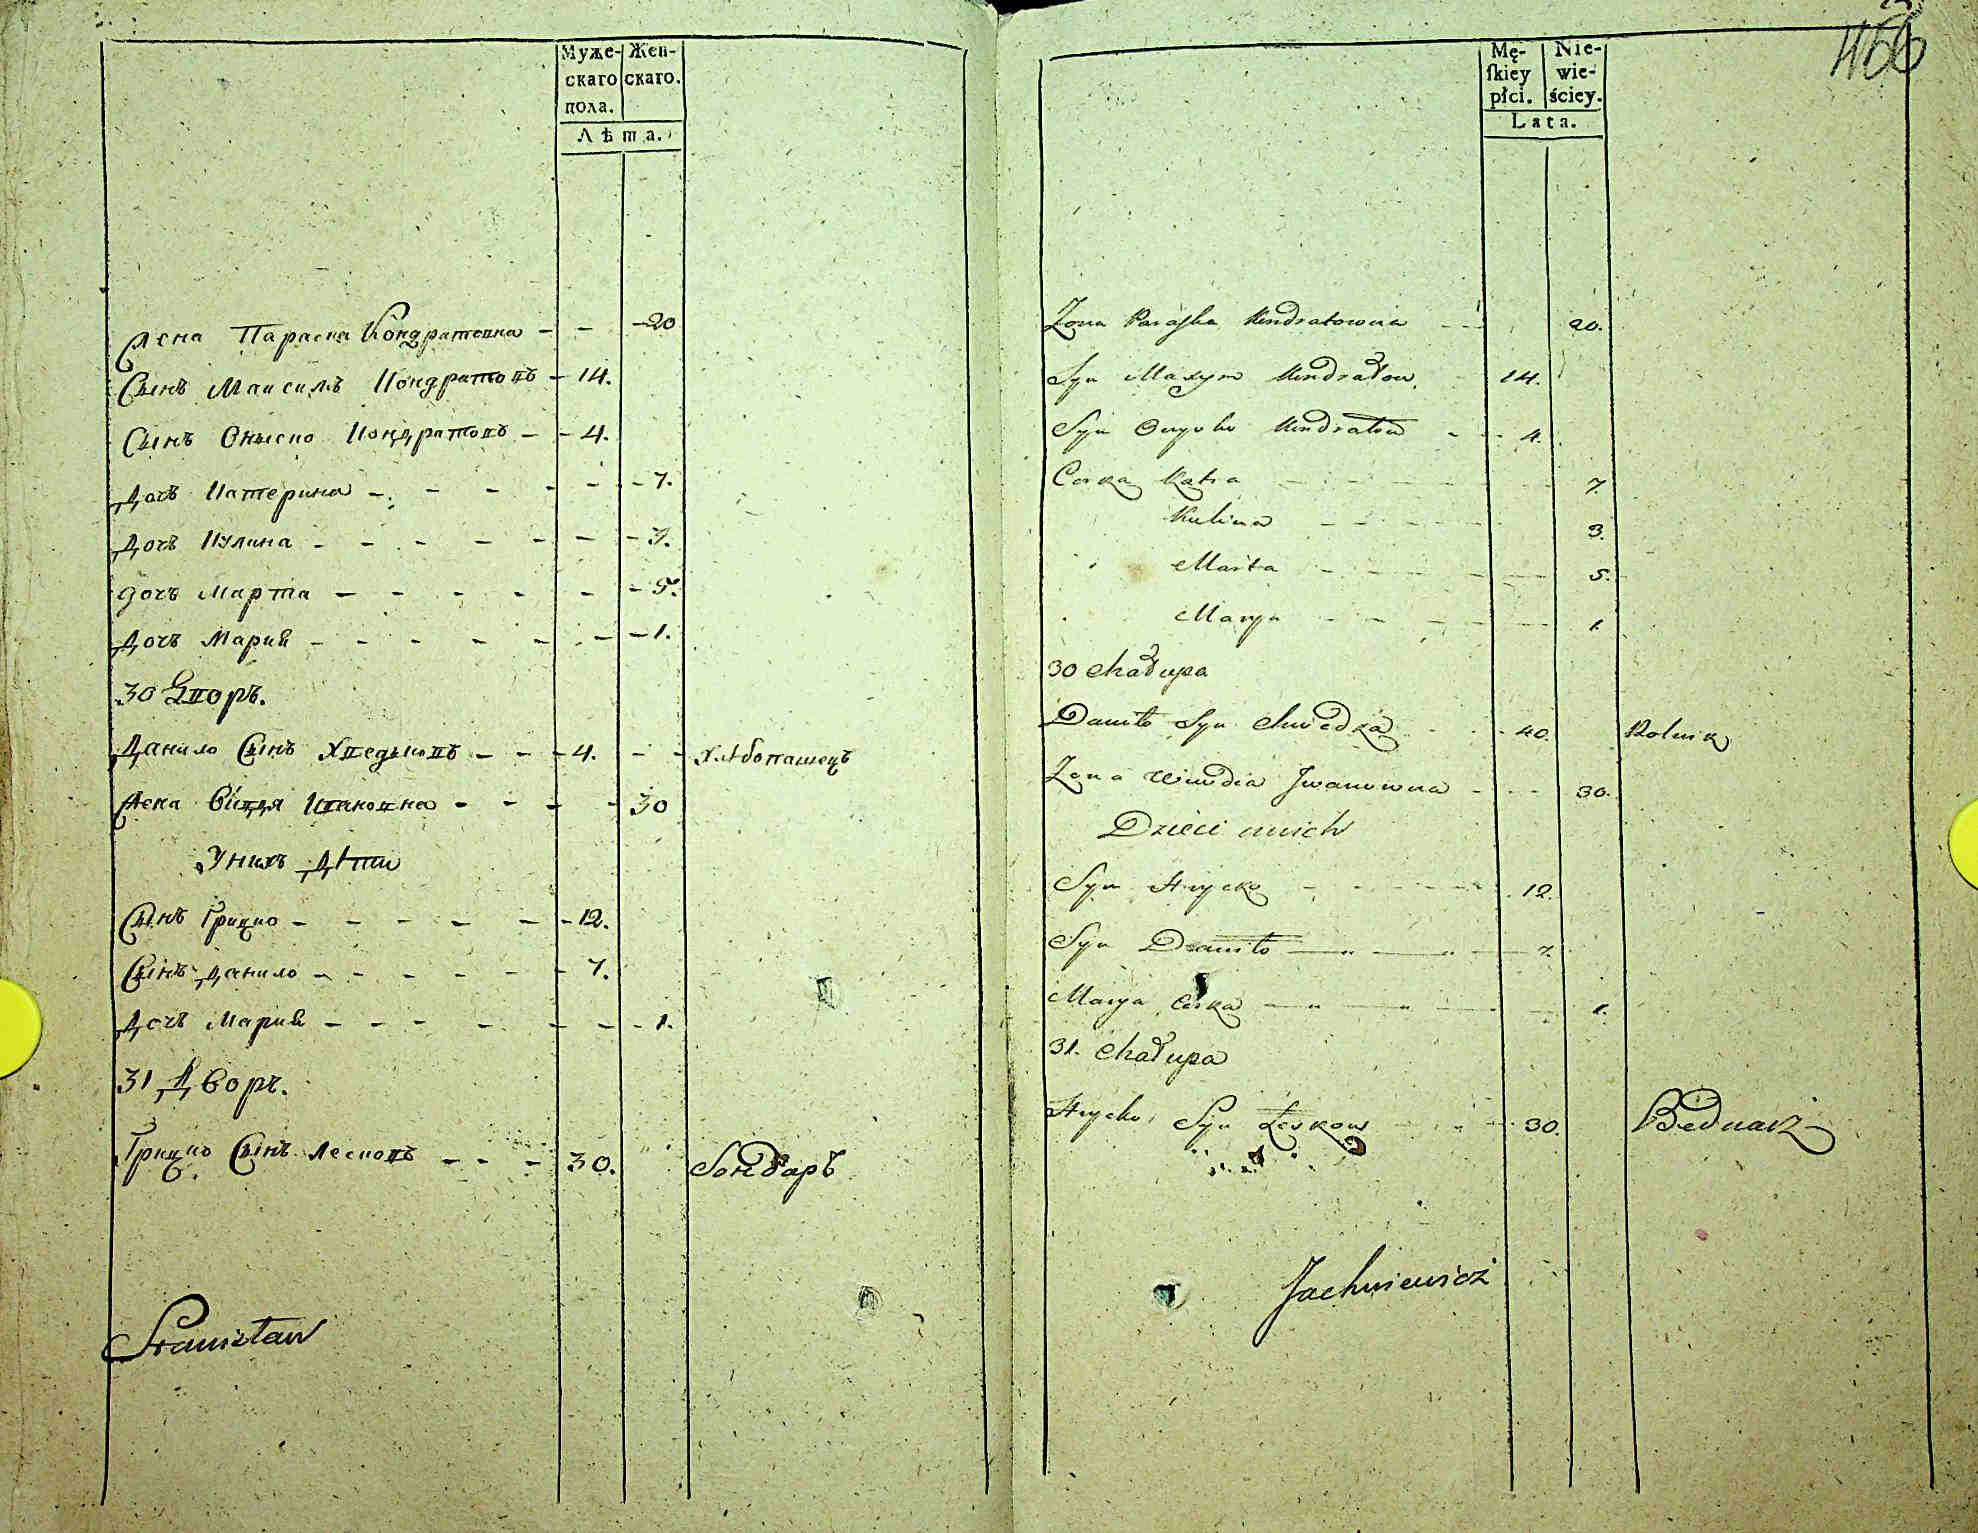 Муже-
скаго
пола.
Жен-
скаго.
Лѣта.
Жена Параска Кондратовна - - - 20
Сынъ Максимъ Кондратовъ - 14.
Сынъ Оныско Кондратовъ - - 4.
Дочъ Катерина - - - - - - 7.
Дочъ Кулина - - - - - - - 3.
дочъ Марта - - - - - - 5.
Дочъ Мария - - - - - - - 1.
30 Дворъ.
Данило Сынъ Хведьковъ - - - 4. - - хлѣбопашецъ
Жена Вивдя Ивановна - - - - 30
У нихъ Дѣти
Сынъ Грицко - - - - - - 12.
Сынъ Данило - - - - - - 7.
Дочъ Мария - - - - - - - 1.
31 Дворъ.
Грицко Сынъ Лесковъ - - - 30. бондаръ
Stanisław
456
Mę-
ſkiey
płci.
Nie-
wie-
ściey.
Lata.
Żona Paraſka Kondratowna - - 20.
Syn Maxym Kondratow 14.
Syn Onysko Kondratow - - 4.
Corka Katra - - - - - 7
Kulina - - - - - 3.
Marta - - - - - 5.
Marya - - - - - 1.
30 Chałupa
Daniło Syn Chwedka - - - 40. Rolnik
Żona Wiwdia Jwanowna - - - 30.
Dzieci u nich
Syn Hrycko - - - - - 12.
Syn Daniło — " — " — 7.
Marya Corka — " — " — 1.
31. Chałupa
Hrycko Syn Łeskow - - - 30. Bednarz
Jachniewicz